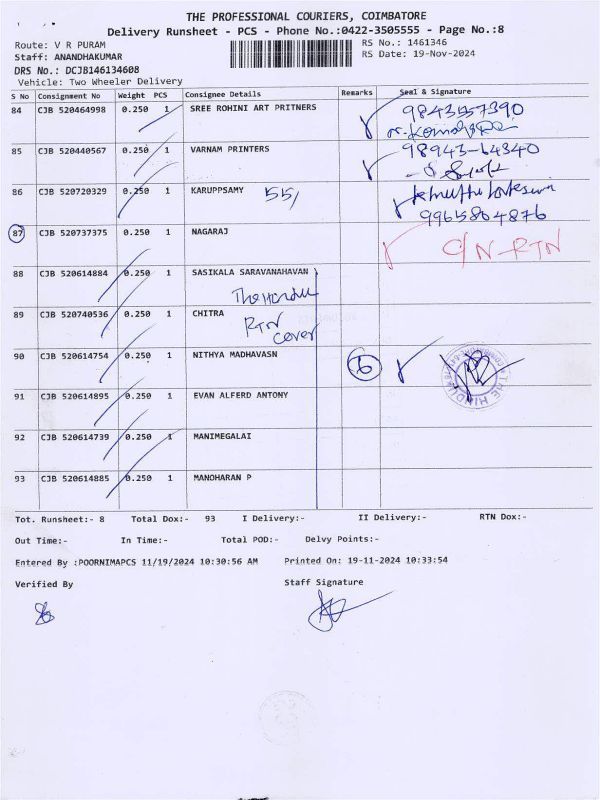 THE PROFESSIONAL COURIERS, COIMBATORE
Delivery Runsheet - PCS - Phone No.:0422-3505555 - Page No.:8
Route: V R PURAM
RS No.: 1461346
Staff: ANANDHAKUMAR
RS Date: 19-Nov-2024
DRS No.: DCJB146134608
Vehicle: Two Wheeler Delivery
S No Consignment No Weight PCS Consignee Details Remarks Seal & Signature
84 CJB 520464998 0.250 1 SREE ROHINI ART PRITNERS
85 CJB 520440567 0.250 1 VARNAM PRINTERS 98943-64340
86 CJB 520720329 0.250 1 KARUPPSAMY 55/
9965864876
87 CJB 520737375 0.250 1 NAGARAJ C/N RTN
88 CJB 520614884 0.250 1 SASIKALA SARAVANAHAVAN
The Hindu
89 CJB 520740536 0.250 1 CHITRA RTN
cover
90 CJB 520614754 0.250 1 NITHYA MADHAVASN 6 THE HINDU
91 CJB 520614895 0.250 1 EVAN ALFERD ANTONY
92 CJB 520614739 0.250 1 MANIMEGALAI
93 CJB 520614885 0.250 1 MANOHARAN P
Tot. Runsheet:- 8 Total Dox:- 93 I Delivery:- II Delivery:- RTN Dox:-
Out Time:- In Time:- Total POD:- Delvy Points:-
Entered By :POORNIMAPCS 11/19/2024 10:30:56 AM Printed On: 19-11-2024 10:33:54
Verified By Staff Signature